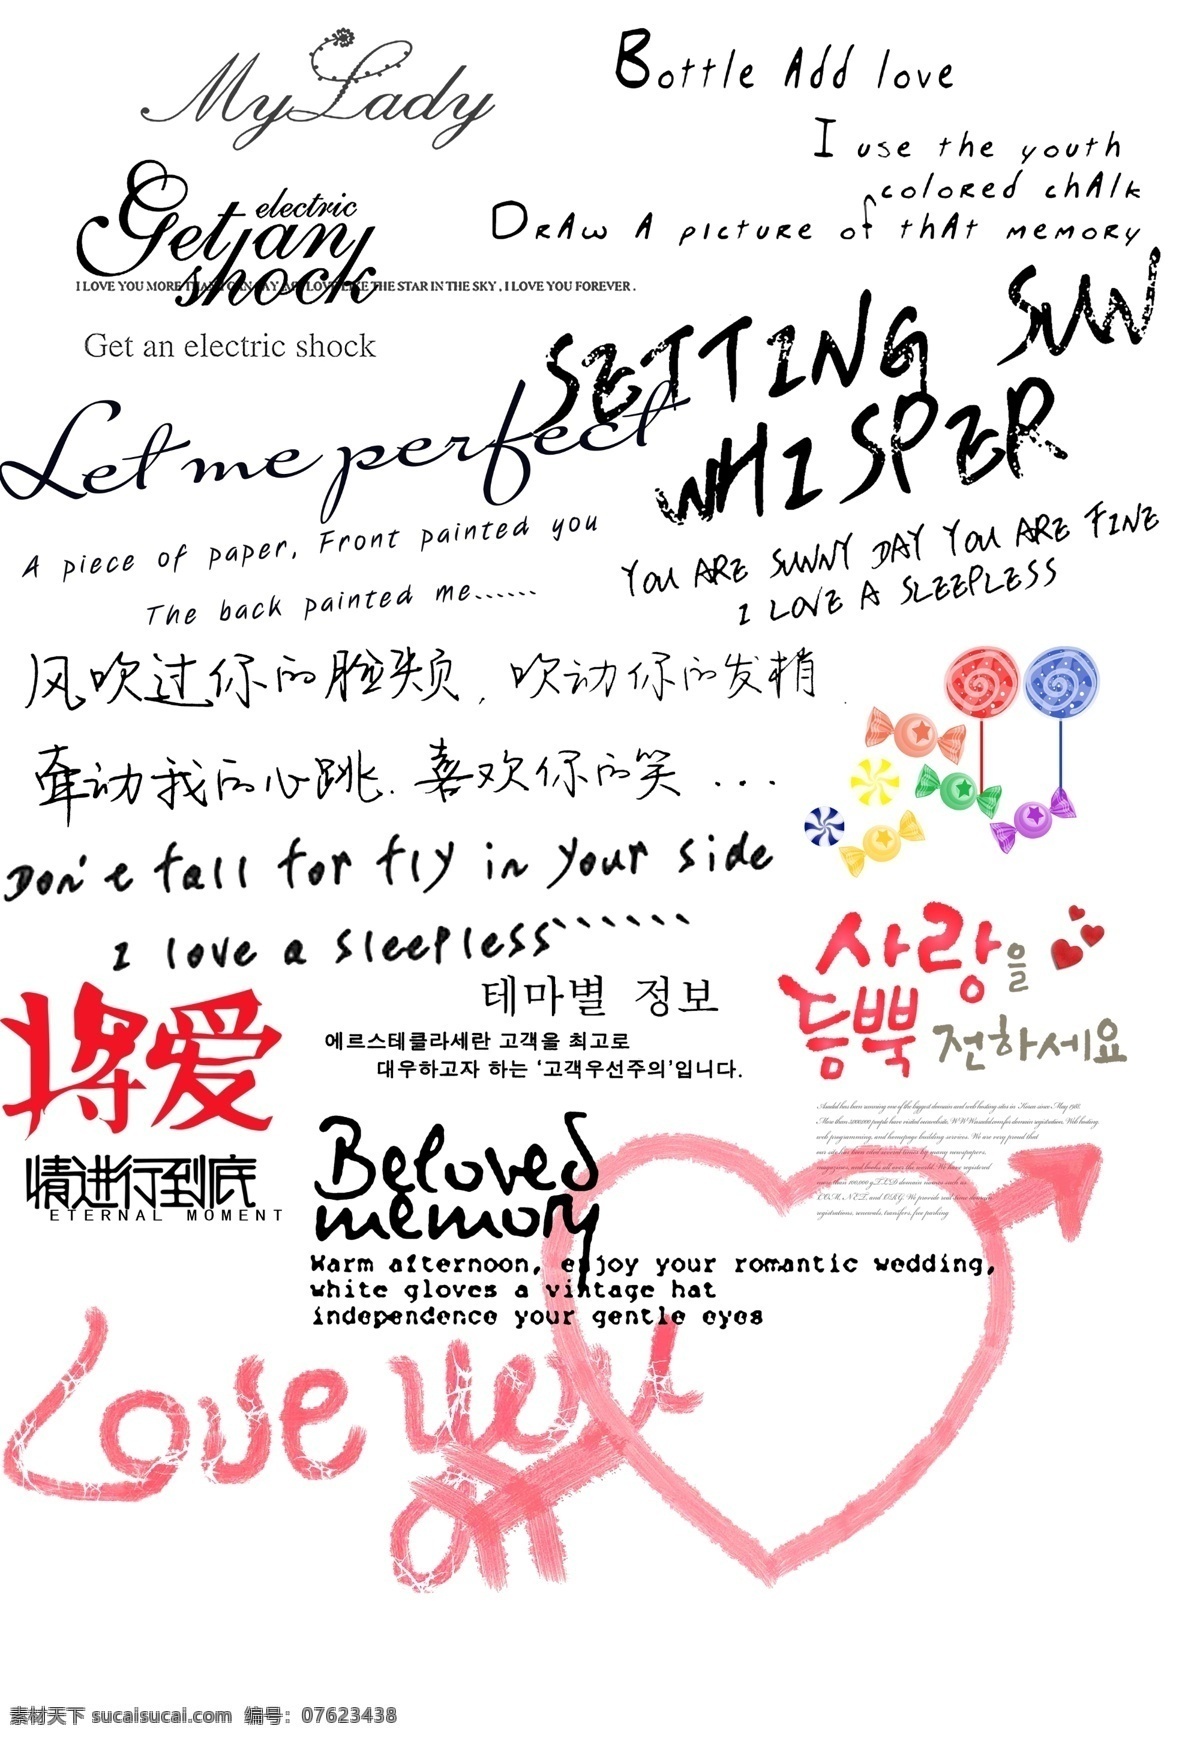 My Lady
Bottle Add love
I use the youth
colored chalk
Draw A picture of that memory
Get an electric shock
I LOVE YOU MORE THAN I CAN SAY AS I LOVE LIKE THE STAR IN THE SKY , I LOVE YOU FOREVER .
Get an electric shock
SETTING SUN
WHISPER
Let me perfect
A piece of paper, Front painted you
The back painted me......
YOU ARE SUNNY DAY YOU ARE FINE
I LOVE A SLEEPLESS
风吹过你的脸颊,吹动你的发梢
牵动我的心跳.喜欢你的笑...
Don't fall for fly in your side
I love a sleepless``````
사랑을
듬뿍 전하세요
테마별 정보
에르스테클라세란 고객을 최고로
대우하고자 하는 ‘고객우선주의’입니다.
将爱
情进行到底
ETERNAL MOMENT
Beloved
memory
Warm afternoon, enjoy your romantic wedding,
white gloves a vintage hat
independence your gentle eyes
Love you
素材天下 sucaisucai.com 编号：07623438